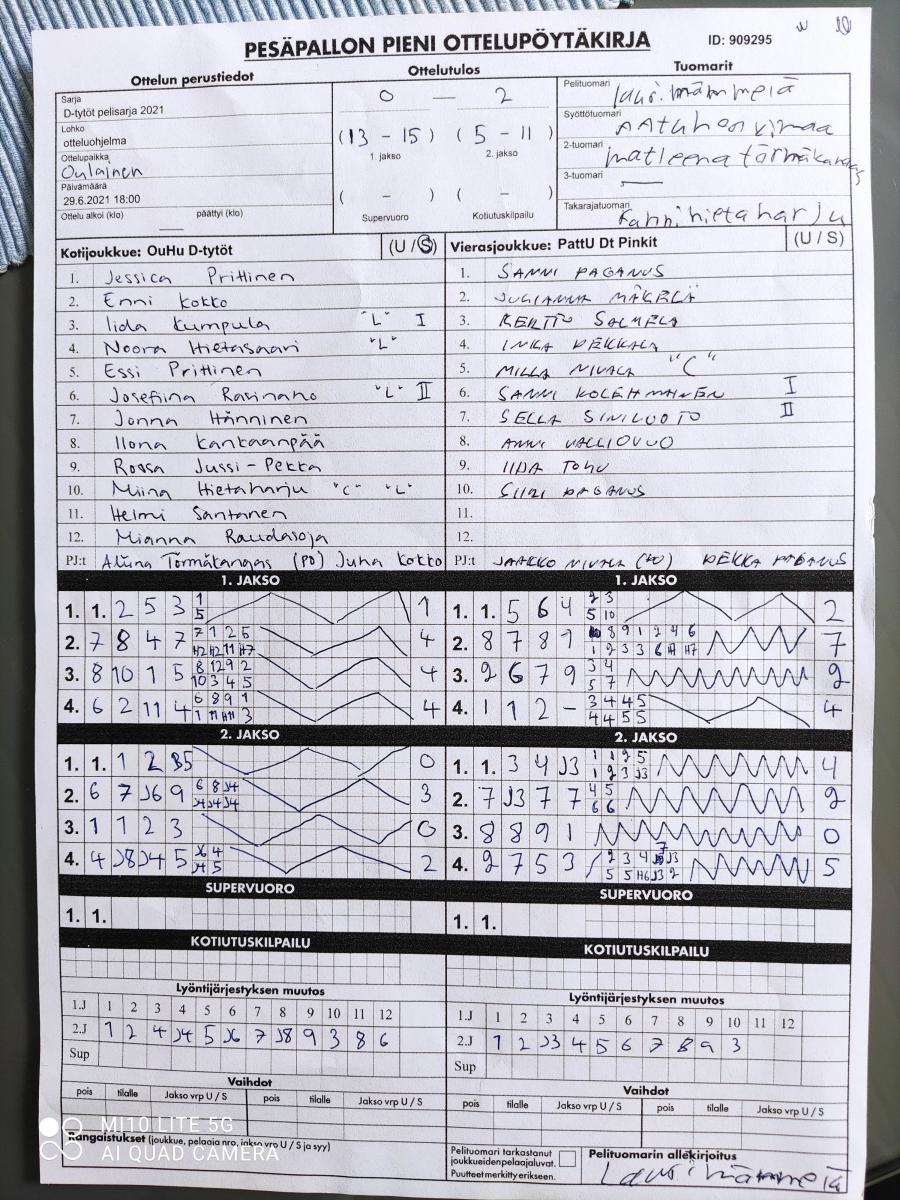 PESÄPALLON PIENI OTTELUPÖYTÄKIRJA
ID: 909295
Ottelun perustiedot
Sarja
D-tytöt pelisarja 2021
Lohko
otteluohjelma
Ottelupaikka
Oulainen
Päivämäärä
29.6.2021 18:00
Ottelu alkoi (klo) päättyi (klo)
Ottelutulos
0 — 2
(13 - 15) (5 - 11)
1. jakso 2. jakso
( - ) ( - )
Supervuoro Kotiutuskilpailu
Tuomarit
Pelituomari
Syöttötuomari
2-tuomari matleena törmäkangas
3-tuomari —
Takarajatuomari hietaharju
Kotijoukkue: OuHu D-tytöt (U / S)
1. Jessica Prittinen
2. Enni Kokko
3. Iida Kumpula "L" I
4. Noora Hietasaari "L"
5. Essi Prittinen
6. Josefiina Ravinaho "L" II
7. Jonna Hänninen
8. Ilona Kankaanpää
9. Roosa Jussi-Pekka
10. Miina Hietaharju "C" "L"
11. Helmi Santanen
12. Mianna Raudasoja
PJ:t Aliina Törmäkangas (PO) Juha Kokko
Vierasjoukkue: PattU Dt Pinkit (U / S)
1. SANNI PAGANUS
2. JULIANNA MÄKELÄ
3. KERTTU SALMELA
4. INKA PEKKALA
5. MILLA NIVALA "C"
6. SANNI KOLEHMAINEN I
7. SELLA SINILUOTO II
8. ANNI VALLIOVUO
9. IIDA
10. SIIRI PAGANUS
11.
12.
PJ:t JAAKKO NIVALA PEKKA PAGANUS
1. JAKSO
1. 1. 2 5 3 1 5 1
2. 7 8 4 7 7 1 2 5 H2 H2 11 H7 4
3. 8 10 1 5 8 12 9 2 10 3 4 5 4
4. 6 2 11 4 6 8 9 1 1 11 H11 3 4
1. JAKSO
1. 1. 5 6 4 2 3 5 10 2
2. 8 7 8 9 8 9 1 2 4 6 1 2 3 3 6 H7 7
3. 2 6 7 9 3 4 5 7 2
4. 1 1 2 - 3 4 4 5 4 4 5 5 4
2. JAKSO
1. 1. 1 2 5 0
2. 6 7 J6 9 6 8 J4 J4 J4 J4 3
3. 1 1 2 3 0
4. 4 J8 J4 5 J6 4 J4 5 2
2. JAKSO
1. 1. 3 4 J3 1 1 2 5 1 2 3 J3 4
2. 7 J3 7 7 4 5 6 6 2
3. 8 8 9 1 0
4. 2 7 5 3 / 2 3 4 7 J3 5 5 H6 J3 2 5
SUPERVUORO
1. 1.
SUPERVUORO
1. 1.
KOTIUTUSKILPAILU
KOTIUTUSKILPAILU
Lyöntijärjestyksen muutos
1.J 1 2 3 4 5 6 7 8 9 10 11 12
2.J 1 2 4 J4 5 J6 7 J8 9 3 8 6
Sup
Lyöntijärjestyksen muutos
1.J 1 2 3 4 5 6 7 8 9 10 11 12
2.J 1 2 J3 4 5 6 7 8 9 3
Sup
Vaihdot
pois tilalle Jakso vrp U / S pois tilalle Jakso vrp U / S
Vaihdot
pois tilalle Jakso vrp U / S pois tilalle Jakso vrp U / S
Rangaistukset (joukkue, pelaaja nro, jakso vrp U / S ja syy)
Pelituomari tarkastanut
joukkueiden pelaajaluvat.
Puutteet merkitty erikseen.
Pelituomarin allekirjoitus
MI 10 LITE 5G
AI QUAD CAMERA